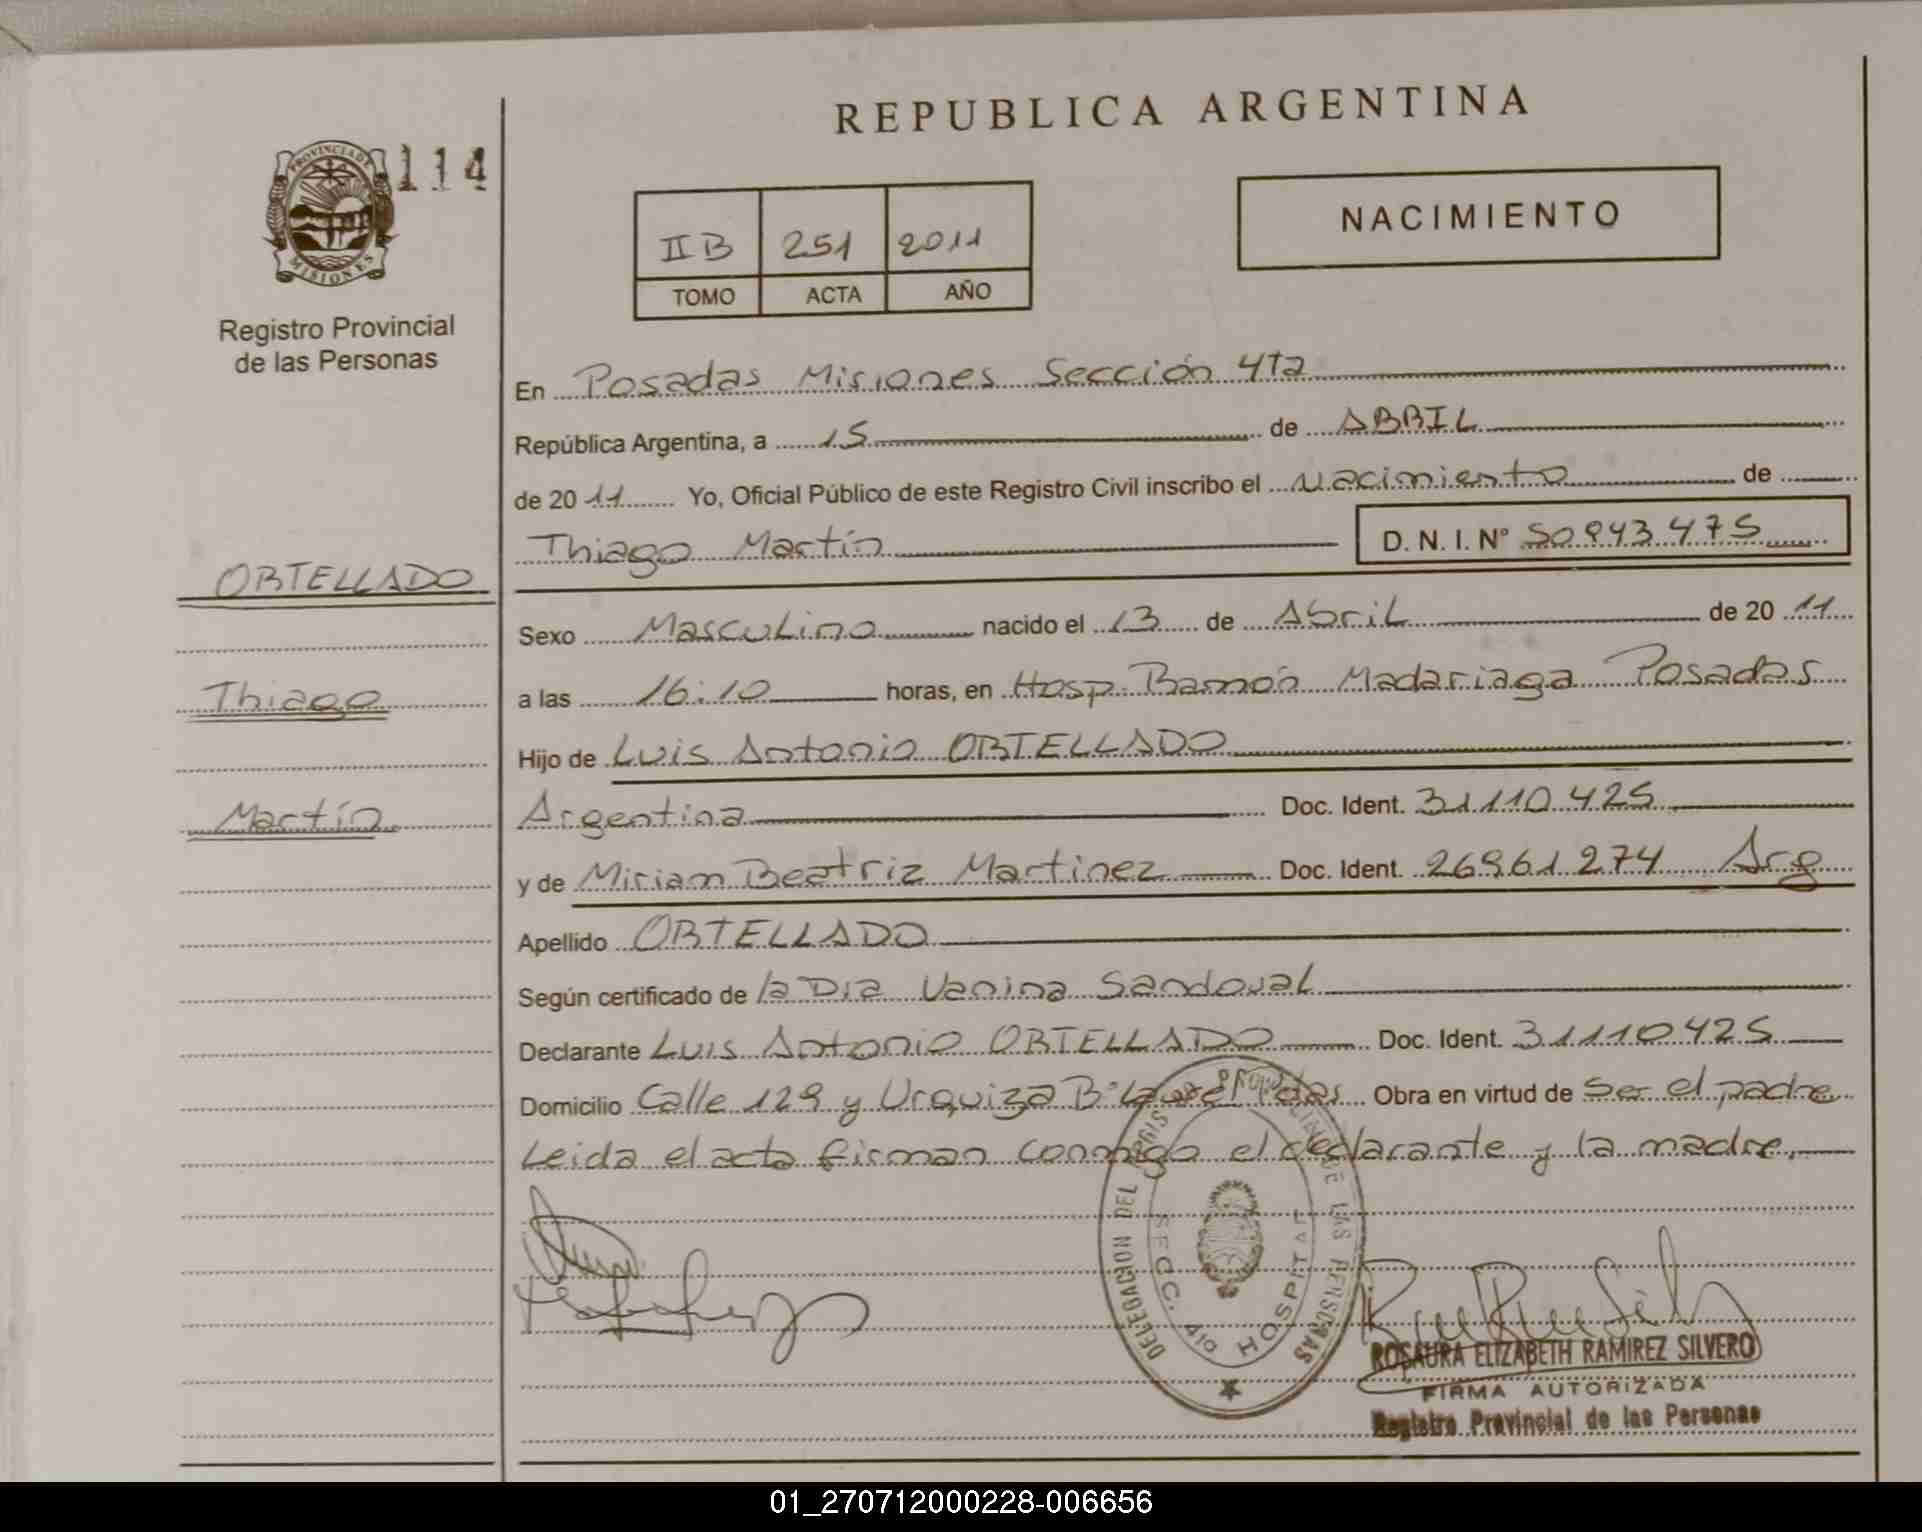 REPUBLICA ARGENTINA
PROVINCIA DE
MISIONES
114
Registro Provincial
de las Personas
NACIMIENTO
II B 251 2011
TOMO ACTA AÑO
En Posadas Misiones Sección 4ta
República Argentina, a 15 de ABRIL
de 20 11 Yo, Oficial Público de este Registro Civil inscribo el Nacimiento de
Thiago Martín D. N. I. N° 50843475
ORTELLADO
Thiago
Martín
Sexo Masculino nacido el 13 de Abril de 20 11
a las 16:10 horas, en Hosp. Ramón Madariaga Posadas
Hijo de Luis Antonio ORTELLADO
Argentina Doc. Ident. 31110425
y de Miriam Beatriz Martinez Doc. Ident. 26961274 Arg
Apellido ORTELLADO
Según certificado de la Dra Vanina Sandoval
Declarante Luis Antonio ORTELLADO Doc. Ident. 31110425
Domicilio Calle 129 y Urquiza B° Obra en virtud de Ser el padre
Leida el acta firman conmigo el declarante y la madre.
DELEGACION DEL REGISTRO PROVINCIAL DE LAS PERSONAS
SECC. 4ta HOSPITAL
ROSAURA ELIZABETH RAMIREZ SILVERO
FIRMA AUTORIZADA
Registro Provincial de las Personas
01_270712000228-006656